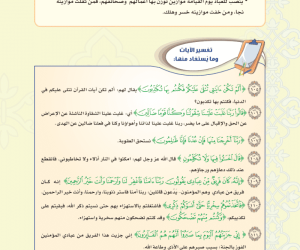 ينصب للعباد يوم القيامة موازين توزن بها أعمالهم وصحائفهم، فمن ثقلت موازينه
نجا، ومن خفت موازينه خسر وهلك.
تفسير الآيات
وما يستفاد منها:
﴿أَلَمْ تَكُنْ ءَايَٰتِى تُتْلَىٰ عَلَيْكُمْ فَكُنتُم بِهَا تُكَذِّبُونَ﴾ يقال لهم: ألم تكن آيات القرآن تتلى عليكم في
الدنيا، فكنتم بها تكذبون؟
﴿قَالُوا۟ رَبَّنَا غَلَبَتْ عَلَيْنَا شِقْوَتُنَا وَكُنَّا قَوْمًا ضَآلِّينَ﴾ أي: غلبت علينا الشقاوة الناشئة عن الإعراض
عن الحق والإقبال على ما يضر، ربنا غلبت علينا لذاتنا وأهواؤنا وكنا في فعلنا ضالين عن الهدى.
﴿رَبَّنَآ أَخْرِجْنَا مِنْهَا فَإِنْ عُدْنَا فَإِنَّا ظَٰلِمُونَ﴾ نستحق العقوبة.
﴿قَالَ ٱخْسَـُٔوا۟ فِيهَا وَلَا تُكَلِّمُونِ﴾ قال الله عز وجل لهم: امكثوا في النار أذلاء ولا تخاطبوني، فانقطع
عند ذلك دعاؤهم ورجاؤهم.
﴿إِنَّهُۥ كَانَ فَرِيقٌ مِّنْ عِبَادِى يَقُولُونَ رَبَّنَآ ءَامَنَّا فَٱغْفِرْ لَنَا وَٱرْحَمْنَا وَأَنتَ خَيْرُ ٱلرَّٰحِمِينَ﴾ إنه كان
فريق من عبادي وهم المؤمنون، يدعون قائلين: ربنا آمنا فاستر ذنوبنا، وارحمنا وأنت خير الراحمين.
﴿فَٱتَّخَذْتُمُوهُمْ سِخْرِيًّا حَتَّىٰٓ أَنسَوْكُمْ ذِكْرِى﴾ فاشتغلتم بالاستهزاء بهم حتى نسيتم ذكر الله، فبقيتم على
تكذيبكم، ﴿وَكُنتُم مِّنْهُمْ تَضْحَكُونَ﴾ وقد كنتم تضحكون منهم سخرية واستهزاء.
﴿إِنِّى جَزَيْتُهُمُ ٱلْيَوْمَ بِمَا صَبَرُوٓا۟ أَنَّهُمْ هُمُ ٱلْفَآئِزُونَ﴾ إني جزيت هذا الفريق من عبادي المؤمنين
الفوز بالجنة؛ بسبب صبرهم على الأذى وطاعة الله.